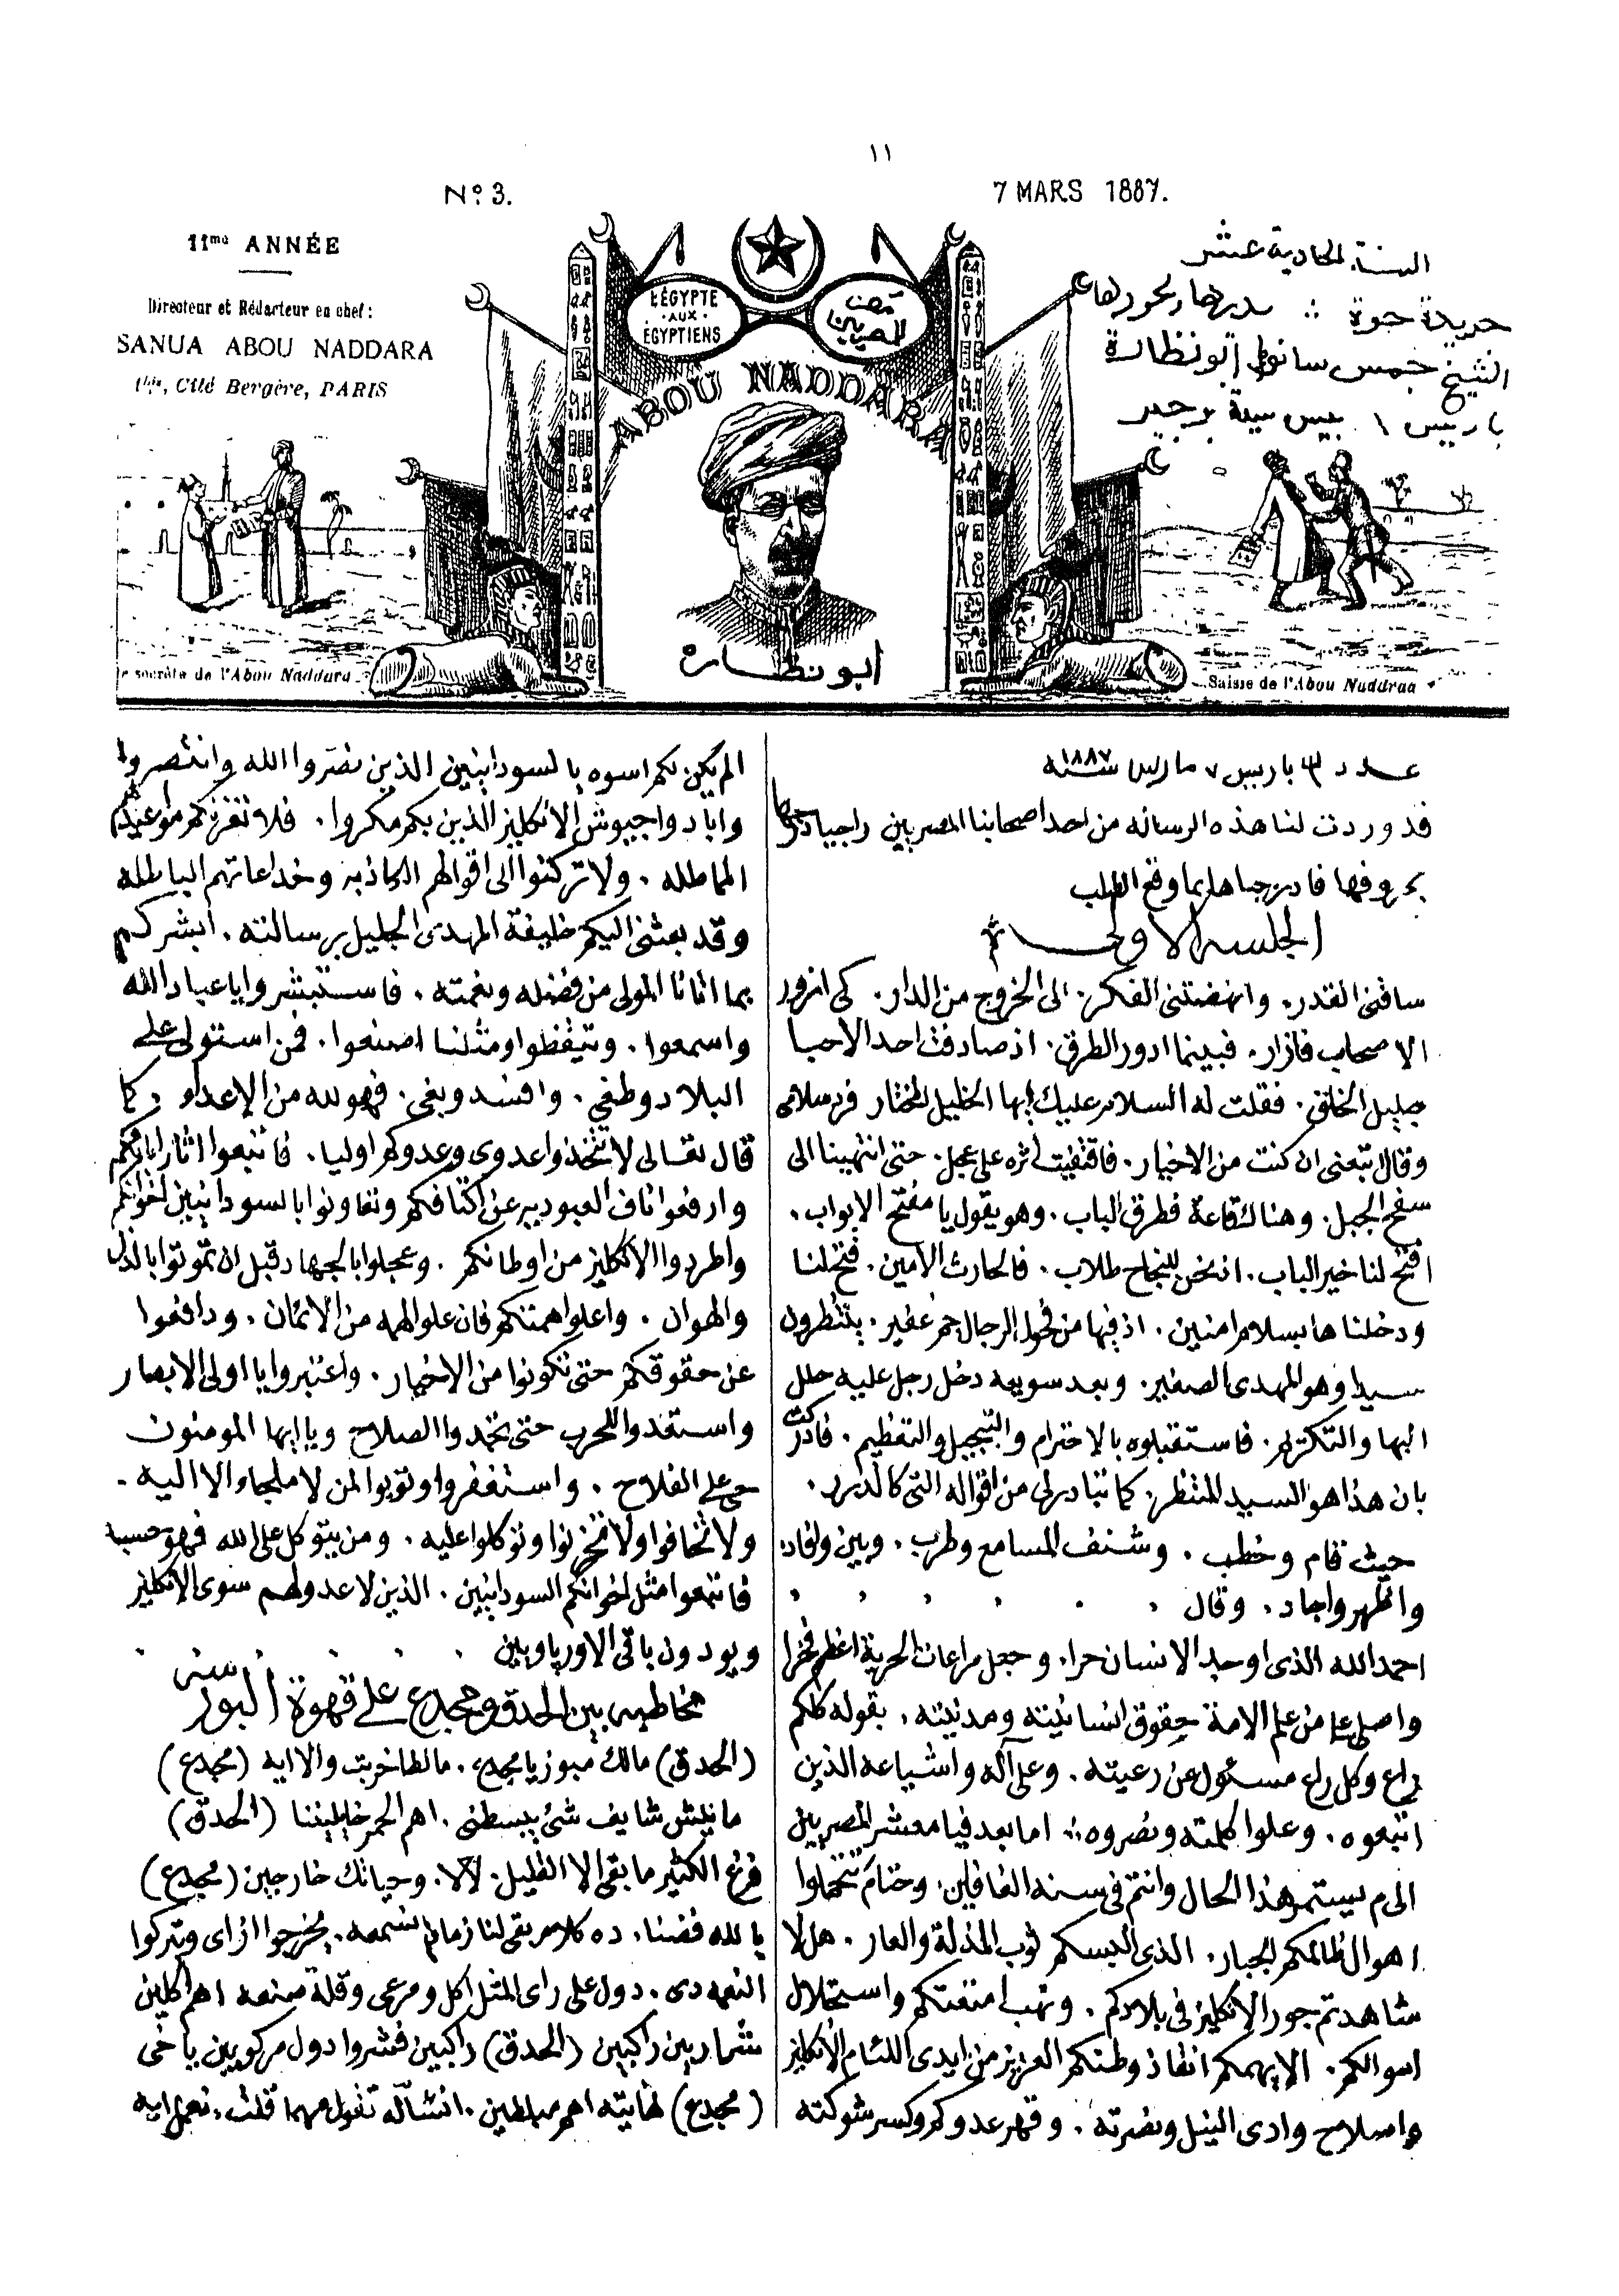 ١١
Nº 3.
7 MARS 1887.
11me ANNÉE
Directeur et Rédacteur en chef:
SANUA ABOU NADDARA
Cité Bergère, PARIS
L'ÉGYPTE
AUX
ÉGYPTIENS
مصر
للمصريين
ABOU NADDARA
السنة الحادية عشر
جريدة حرة مديرها ومحررها
الشيخ جمس سانوا ابو نظارة
باريس ٦ سيته برجير
ابو نظارة
secrète de l'Abou Naddara
Saisie de l'Abou Naddara
عدد ٣ باريس ٧ مارس سنة ١٨٨٧
قد وردت لنا هذه الرساله من احد اصحابنا المصريين راجيا درجها
بحروفها فادرجناها بما وقع الطلب
الجلسه الاولى
ساقنى القدر. وانهضتنى الفكر. الى الخروج من الدار. كى ازور
الاصحاب فازار. فبينما ادور الطرق. اذ صادفت احد الاحبا
جليل الخلق. فقلت له السلام عليك ايها الخليل المختار فرد سلامى
وقال اتبعنى ان كنت من الاخيار. فاقتفيت اثره على عجل. حتى انتهينا الى
سفح الجبل. وهناك قاعة فطرق الباب. وهو يقول يا مفتح الابواب.
افتح لنا خير الباب. اننحن للنجاح طلاب. فالحارث الامين. فتح لنا
ودخلناها بسلام امنين. اذ فيها من فحول الرجال جم غفير. ينتظرون
سيدا وهو المهدى الصغير. وبعد سويعه دخل رجل عليه حلل
البها والتكريم. فاستقبلوه بالاحترام والتبجيل والتعظيم. فادركت
بان هذا هو السيد المنتظر. كما تبادر لى من اقواله التى كالدرر.
حيث قام وخطب. وشنف المسامع وطرب. وبين وافاد.
واظهر واجاد. وقال
احمد الله الذى اوجد الانسان حرا. وجعل مراعات الحرية اعظم فخرا
واصلى على من علم الامة حقوق انسانيته ومدنيته. بقوله كلكم
راع وكل راع مسئول عن رعيته. وعلى آله واشياعه الذين
اتبعوه. وعلوا كلمته ونصروه. اما بعد فيا معشر المصريين
الى م يستمر هذا الحال وانتم فى سنه الغافلين. وحتام تتحملوا
اهوال ظالمكم الجبار. الذى البسكم ثوب المذلة والعار. هل لا
شاهدتم جور الانكليز فى بلادكم. ونهب امتعتكم واستحلال
اموالكم. الا يهمكم انقاذ وطنكم العزيز من ايدى اللئام الانكليز
واصلاح وادى النيل ونضرته. وقهر عدوكم وكسر شوكته
الم يكن لكم اسوه بالسودانيين الذين نصروا الله وانتصروا
وابادوا جيوش الانكليز الذين بكم مكروا. فلا تغرنكم مواعيدهم
المماطله. ولا تركنوا الى اقوالهم الكاذبه وخداعاتهم الباطله
وقد بعثنى اليكم خليفة المهدى الجليل برسالته. ابشركم
بما اتانا المولى من فضله ونعمته. فاستبشروا يا عباد الله
واسمعوا. وتيقظوا ومثلنا اصنعوا. فمن استولى على
البلاد وطغى. وافسد وبغى. فهو لله من الاعداء. كما
قال تعالى لا تتخذوا عدوى وعدوكم اوليا. فاتبعوا اثار ابائكم
وارفعوا اناف العبوديه عن اكتافكم وتعاونوا بالسودانيين اخوانكم
واطردوا الانكليز من اوطانكم. وعجلوا بالجهاد قبل ان تموتوا بالذل
والهوان. واعلوا همتكم فان علو الهمه من الايمان. ودافعوا
عن حقوقكم حتى تكونوا من الاخيار. واعتبروا يا اولى الابصار
واستعدوا للحرب حتى تجدوا الصلاح ويا ايها المومنون
حى على الفلاح. واستغفروا وتوبوا لمن لا ملجاء الا اليه.
ولا تخافوا ولا تحزنوا وتوكلوا عليه. ومن يتوكل على الله فهو حسبه
فاتبعوا مثل اخوانكم السودانيين. الذين لا عدو لهم سوى الانكليز
ويودون باقى الاورپاويين
مخاطبه بين الحدق ومجدع على قهوة البورسه
(الحدق) مالك مبوز يا مجدع. مالطا خربت والا ايه (مجدع)
مانيش شايف شئ يبسطنى. اهم الحمر خابليننا (الحدق)
فرغ الكثير ما بقى الا القليل. لالا. وحياتك خارجين (مجدع)
يا لله فضنا. ده كلام بقى لنا زمان نسمعه. يخرجوا ازاى ويتركوا
النعمه دى. دول على راى المثل اكل ومرعى وقلة صنعه اهم اكلين
شاربين راكبين (الحدق) راكبين فشروا دول مركوبين يا خى
(مجدع) لهايته اهم مبلطين. انشالله تقول مهما قلت. نعمل ايه